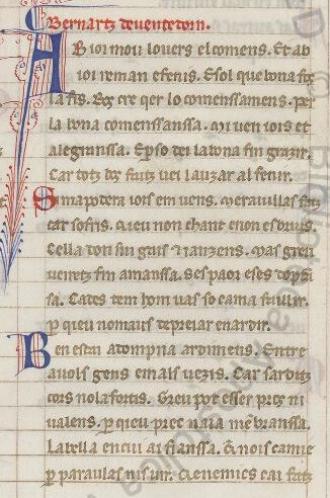 Bernartz deuentedorn.
AB ioi mou louers el comens. Et ab
ioi reman efenis. E sol que bona fos
la fis. Bos cre qer lo comenssamens. per
la bona comenssanssa. mi uen iois et
alegranssa. E pso dei la bona fin grazir.
Car totz bos faitz uei lauzar al fenir.
Si mapodera iois em uens. Merauillas faz
car sofris. Queu non chant e non esbruis.
Cella don sui gais & iauzens. Mas greu
ueiretz fin amanssa. Ses paor e ses dopta
sa. Cades tem hom uas so cama faillir.
p qieu nomaus de parlar enardir.
Ben estai adompna ardimens. Entre
auols gens e mals uezis. Car sarditz
cors nola fortis. Greu pot esser pros ni
ualens. p qieu prec naia membranssa.
La bella en cui ai fianssa. Q nois camie
p paraulas nis uir. Qenemics cai fatz